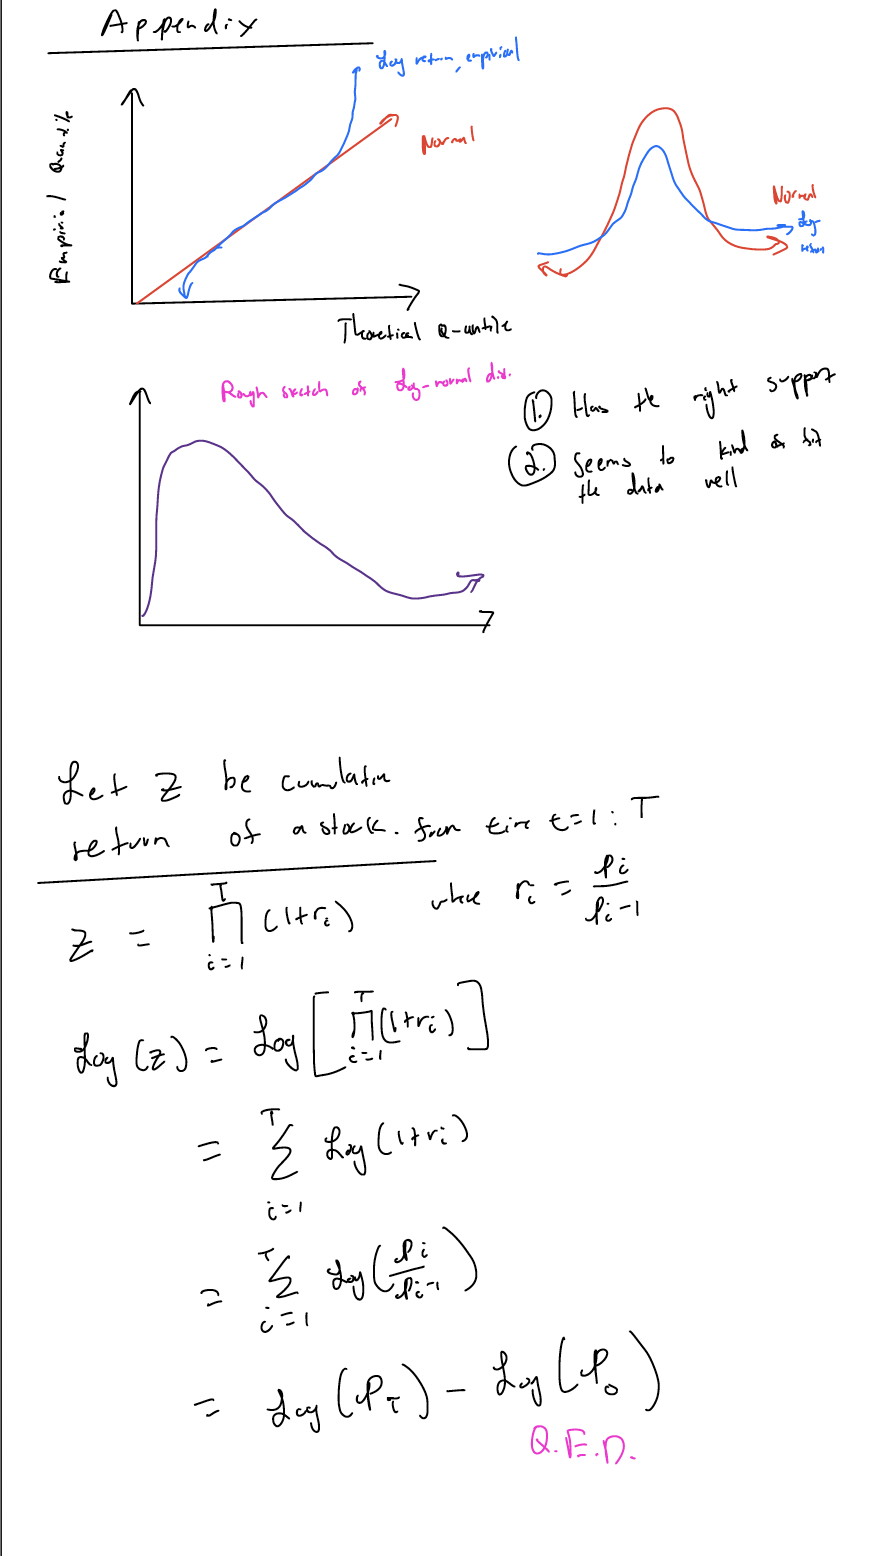 Appendix
Log return, empirical
Normal
Empirical Quantile
Theoretical Quantile
Normal
Log
return
Rough sketch of Log-normal dis.
1. Has the right support
2. Seems to kind of fit
the data well
Let Z be cumulative
return of a stock. from time t=1:T
Z = ∏_{i=1}^{T} (1+r_i) where r_i = P_i / P_{i-1}
Log(Z) = Log[∏_{i=1}^{T} (1+r_i)]
= Σ_{i=1}^{T} Log(1+r_i)
= Σ_{i=1}^{T} Log(P_i / P_{i-1})
= Log(P_T) - Log(P_0)
Q.E.D.